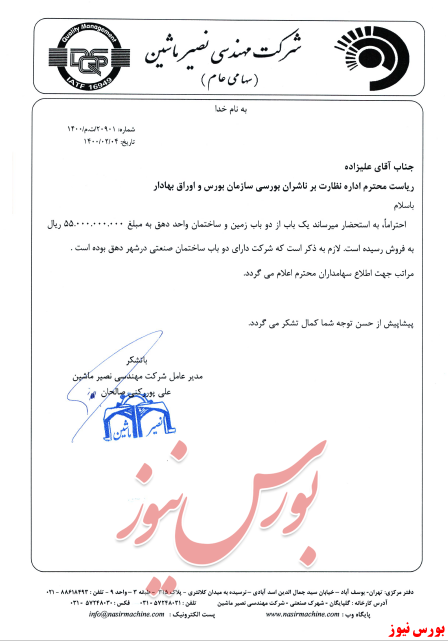 Quality Management
DQS
IATF 16949
شرکت مهندسی نصیر ماشین
(سهامی عام)
به نام خدا
شماره: ۲۰۹۰۱/ت‌م/۱۴۰۰
تاریخ: ۱۴۰۰/۰۲/۰۴
جناب آقای علیزاده
ریاست محترم اداره نظارت بر ناشران بورسی سازمان بورس و اوراق بهادار
باسلام
احتراماً، به استحضار میرساند یک باب از دو باب زمین و ساختمان واحد دهق به مبلغ ۵۵.۰۰۰.۰۰۰.۰۰۰ ریال
به فروش رسیده است. لازم به ذکر است که شرکت دارای دو باب ساختمان صنعتی درشهر دهق بوده است .
مراتب جهت اطلاع سهامداران محترم اعلام می گردد.
پیشاپیش از حسن توجه شما کمال تشکر می گردد.
باتشکر
مدیر عامل شرکت مهندسی نصیر ماشین
علی پور صالحان
نصیر ماشین
بورس نیوز
دفتر مرکزی: تهران- یوسف آباد - خیابان سید جمال الدین اسد آبادی - نرسیده به میدان کلانتری - پلاک - طبقه ۳ - واحد ۹ - تلفن : ۸۸۶۱۸۴۹۳ - ۰۲۱
آدرس کارخانه : گلپایگان - شهرک صنعتی - شرکت مهندسی نصیر ماشین تلفن : ۵۷۲۴۸۰۳۱ - ۰۳۱ فکس : ۵۷۲۴۸۰۳۰ - ۰۳۱
پایگاه وب : www.nasirmachine.com پست الکترونیک : info@nasirmachine.com
بورس نیوز